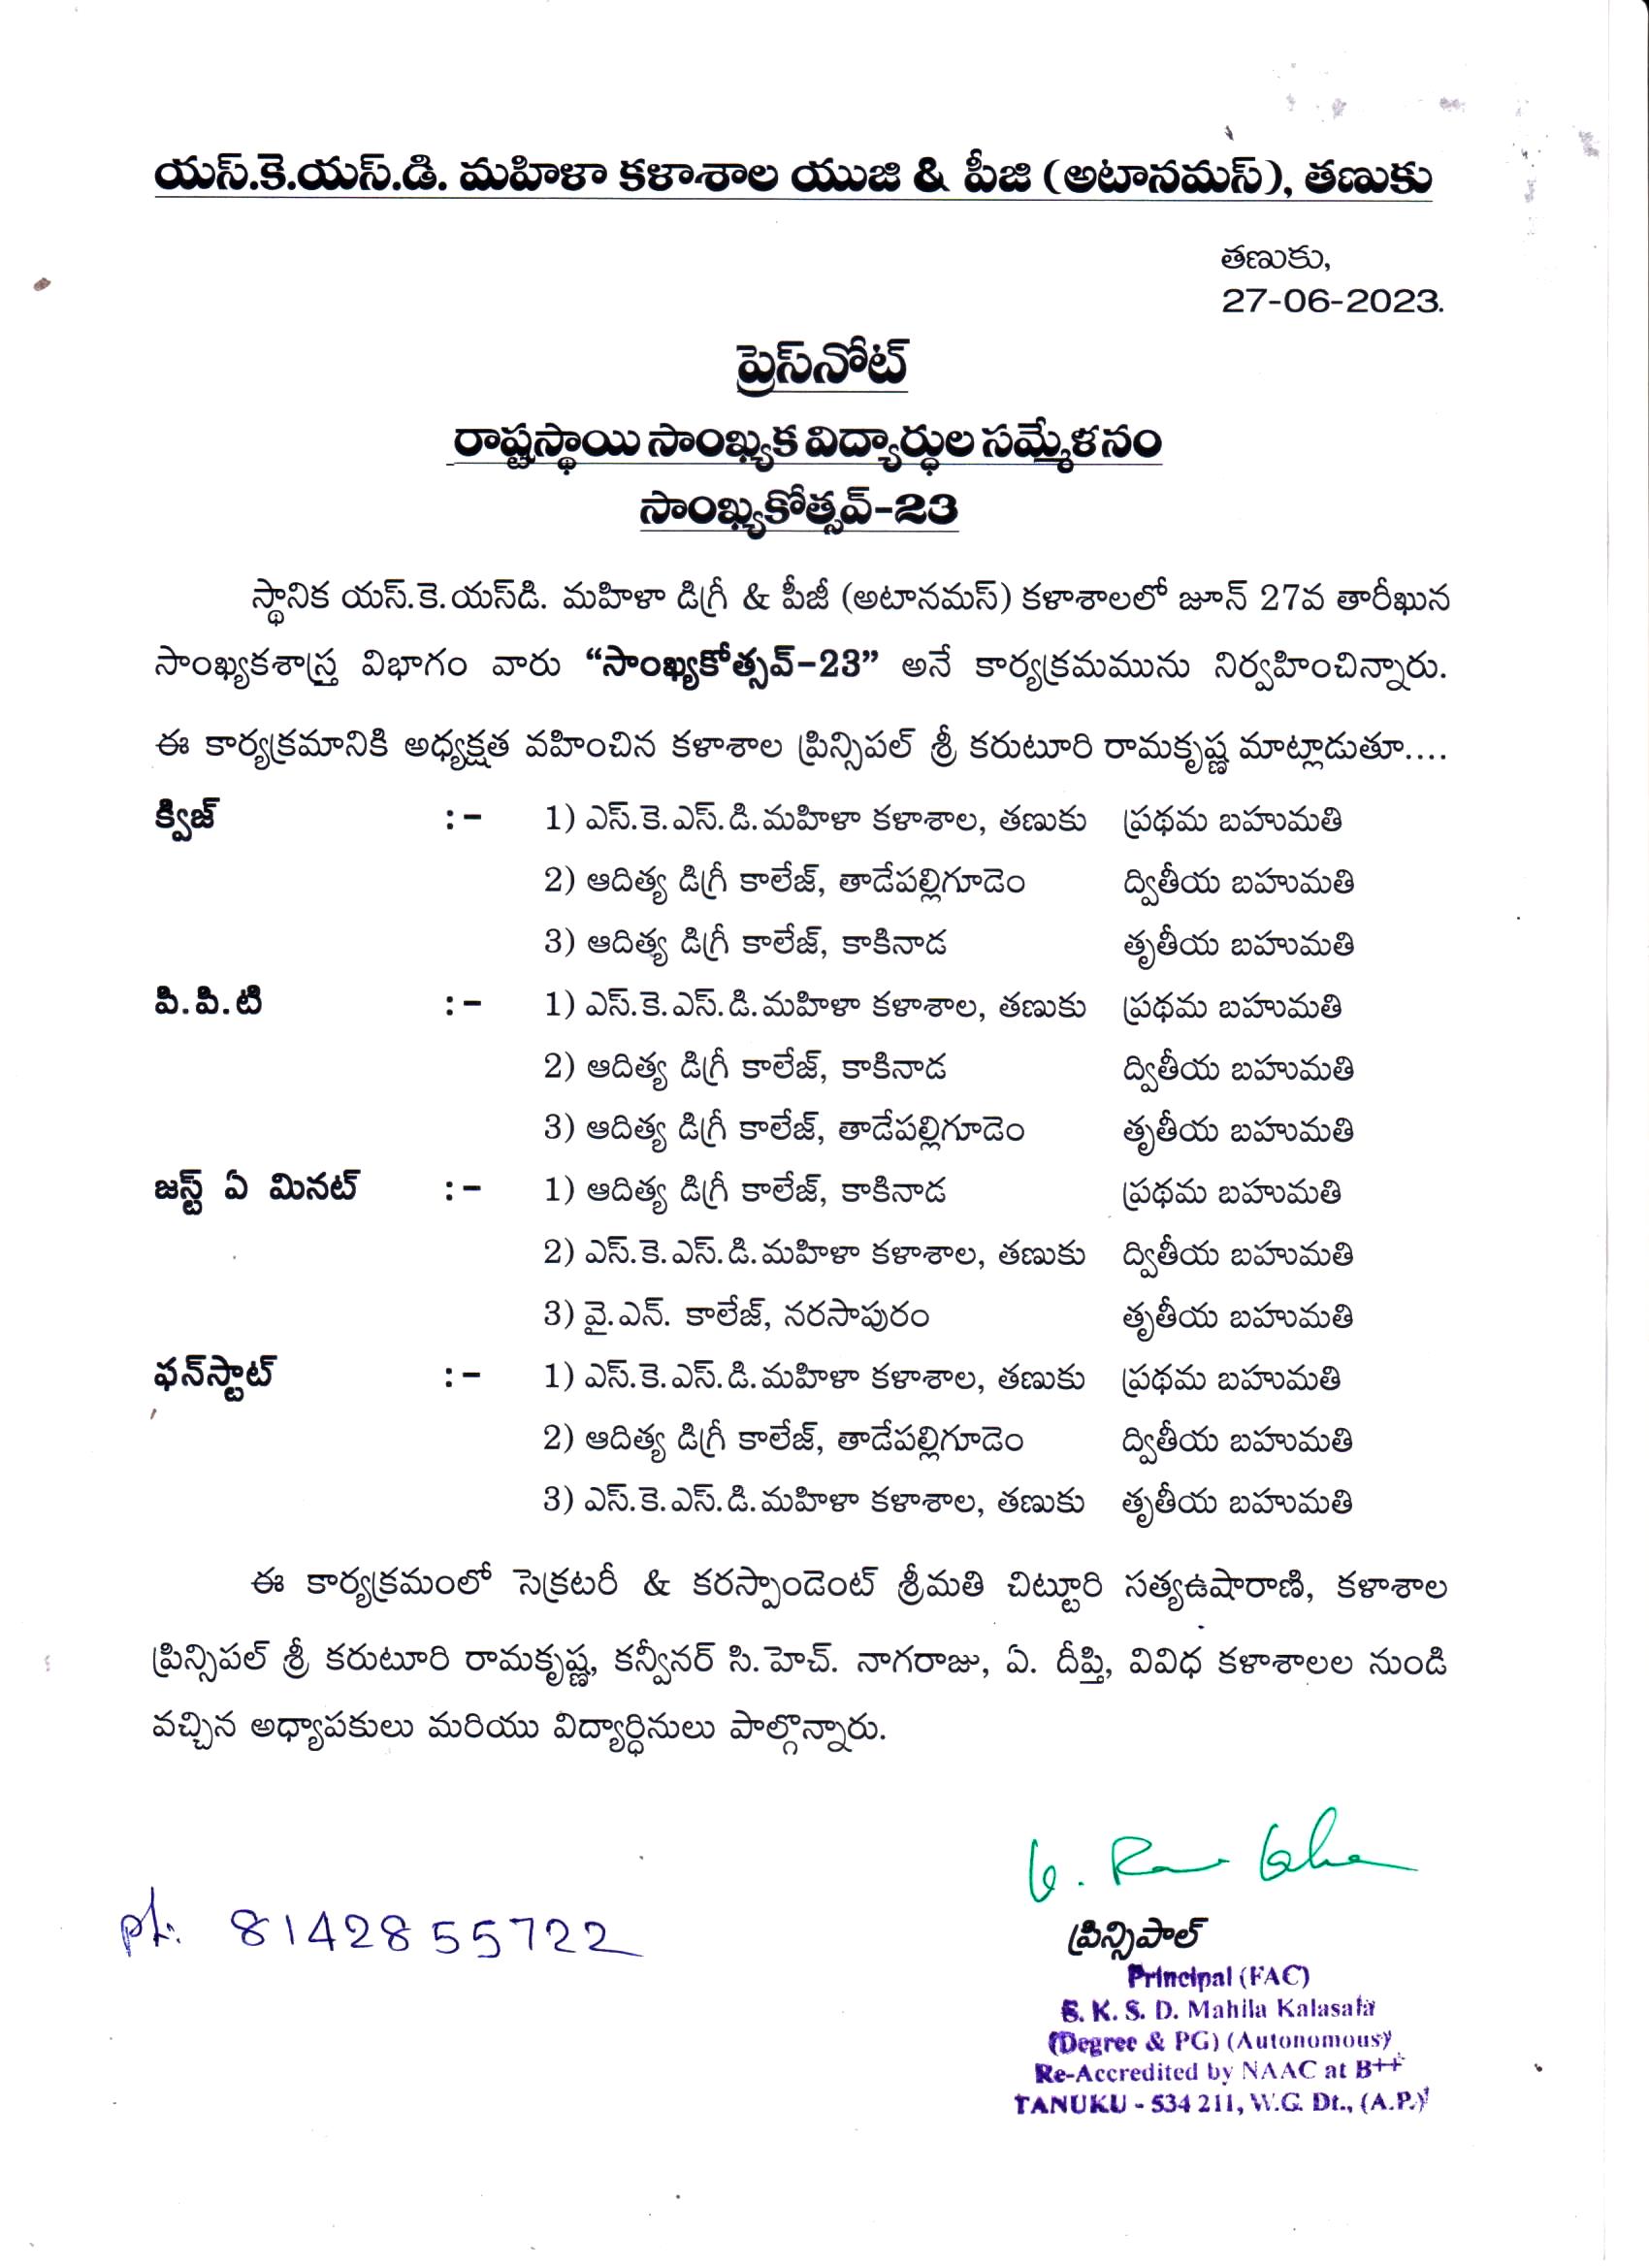 యస్.కె.యస్.డి. మహిళా కళాశాల యుజి & పీజి (అటానమస్), తణుకు
తణుకు,
27-06-2023.
ప్రెస్‌నోట్
రాష్ట్రస్థాయి సాంఖ్యక విద్యార్థుల సమ్మేళనం
సాంఖ్యకోత్సవ్-23
స్థానిక యస్.కె.యస్‌డి. మహిళా డిగ్రీ & పీజీ (అటానమస్) కళాశాలలో జూన్ 27వ తారీఖున
సాంఖ్యకశాస్త్ర విభాగం వారు “సాంఖ్యకోత్సవ్-23” అనే కార్యక్రమమును నిర్వహించిన్నారు.
ఈ కార్యక్రమానికి అధ్యక్షత వహించిన కళాశాల ప్రిన్సిపల్ శ్రీ కరుటూరి రామకృష్ణ మాట్లాడుతూ....
క్విజ్ :- 1) ఎస్.కె.ఎస్.డి.మహిళా కళాశాల, తణుకు ప్రథమ బహుమతి
2) ఆదిత్య డిగ్రీ కాలేజ్, తాడేపల్లిగూడెం ద్వితీయ బహుమతి
3) ఆదిత్య డిగ్రీ కాలేజ్, కాకినాడ తృతీయ బహుమతి
పి.పి.టి :- 1) ఎస్.కె.ఎస్.డి.మహిళా కళాశాల, తణుకు ప్రథమ బహుమతి
2) ఆదిత్య డిగ్రీ కాలేజ్, కాకినాడ ద్వితీయ బహుమతి
3) ఆదిత్య డిగ్రీ కాలేజ్, తాడేపల్లిగూడెం తృతీయ బహుమతి
జస్ట్ ఏ మినట్ :- 1) ఆదిత్య డిగ్రీ కాలేజ్, కాకినాడ ప్రథమ బహుమతి
2) ఎస్.కె.ఎస్.డి.మహిళా కళాశాల, తణుకు ద్వితీయ బహుమతి
3) వై.ఎన్. కాలేజ్, నరసాపురం తృతీయ బహుమతి
ఫన్‌స్టాట్ :- 1) ఎస్.కె.ఎస్.డి.మహిళా కళాశాల, తణుకు ప్రథమ బహుమతి
2) ఆదిత్య డిగ్రీ కాలేజ్, తాడేపల్లిగూడెం ద్వితీయ బహుమతి
3) ఎస్.కె.ఎస్.డి.మహిళా కళాశాల, తణుకు తృతీయ బహుమతి
ఈ కార్యక్రమంలో సెక్రటరీ & కరస్పాండెంట్ శ్రీమతి చిట్టూరి సత్యఉషారాణి, కళాశాల
ప్రిన్సిపల్ శ్రీ కరుటూరి రామకృష్ణ, కన్వీనర్ సి.హెచ్. నాగరాజు, ఏ. దీప్తి, వివిధ కళాశాలల నుండి
వచ్చిన అధ్యాపకులు మరియు విద్యార్ధినులు పాల్గొన్నారు.
Ph: 8142855722
ప్రిన్సిపాల్
Principal (FAC)
S. K. S. D. Mahila Kalasala
(Degree & PG) (Autonomous)
Re-Accredited by NAAC at B++
TANUKU - 534 211, W.G. Dt., (A.P.)